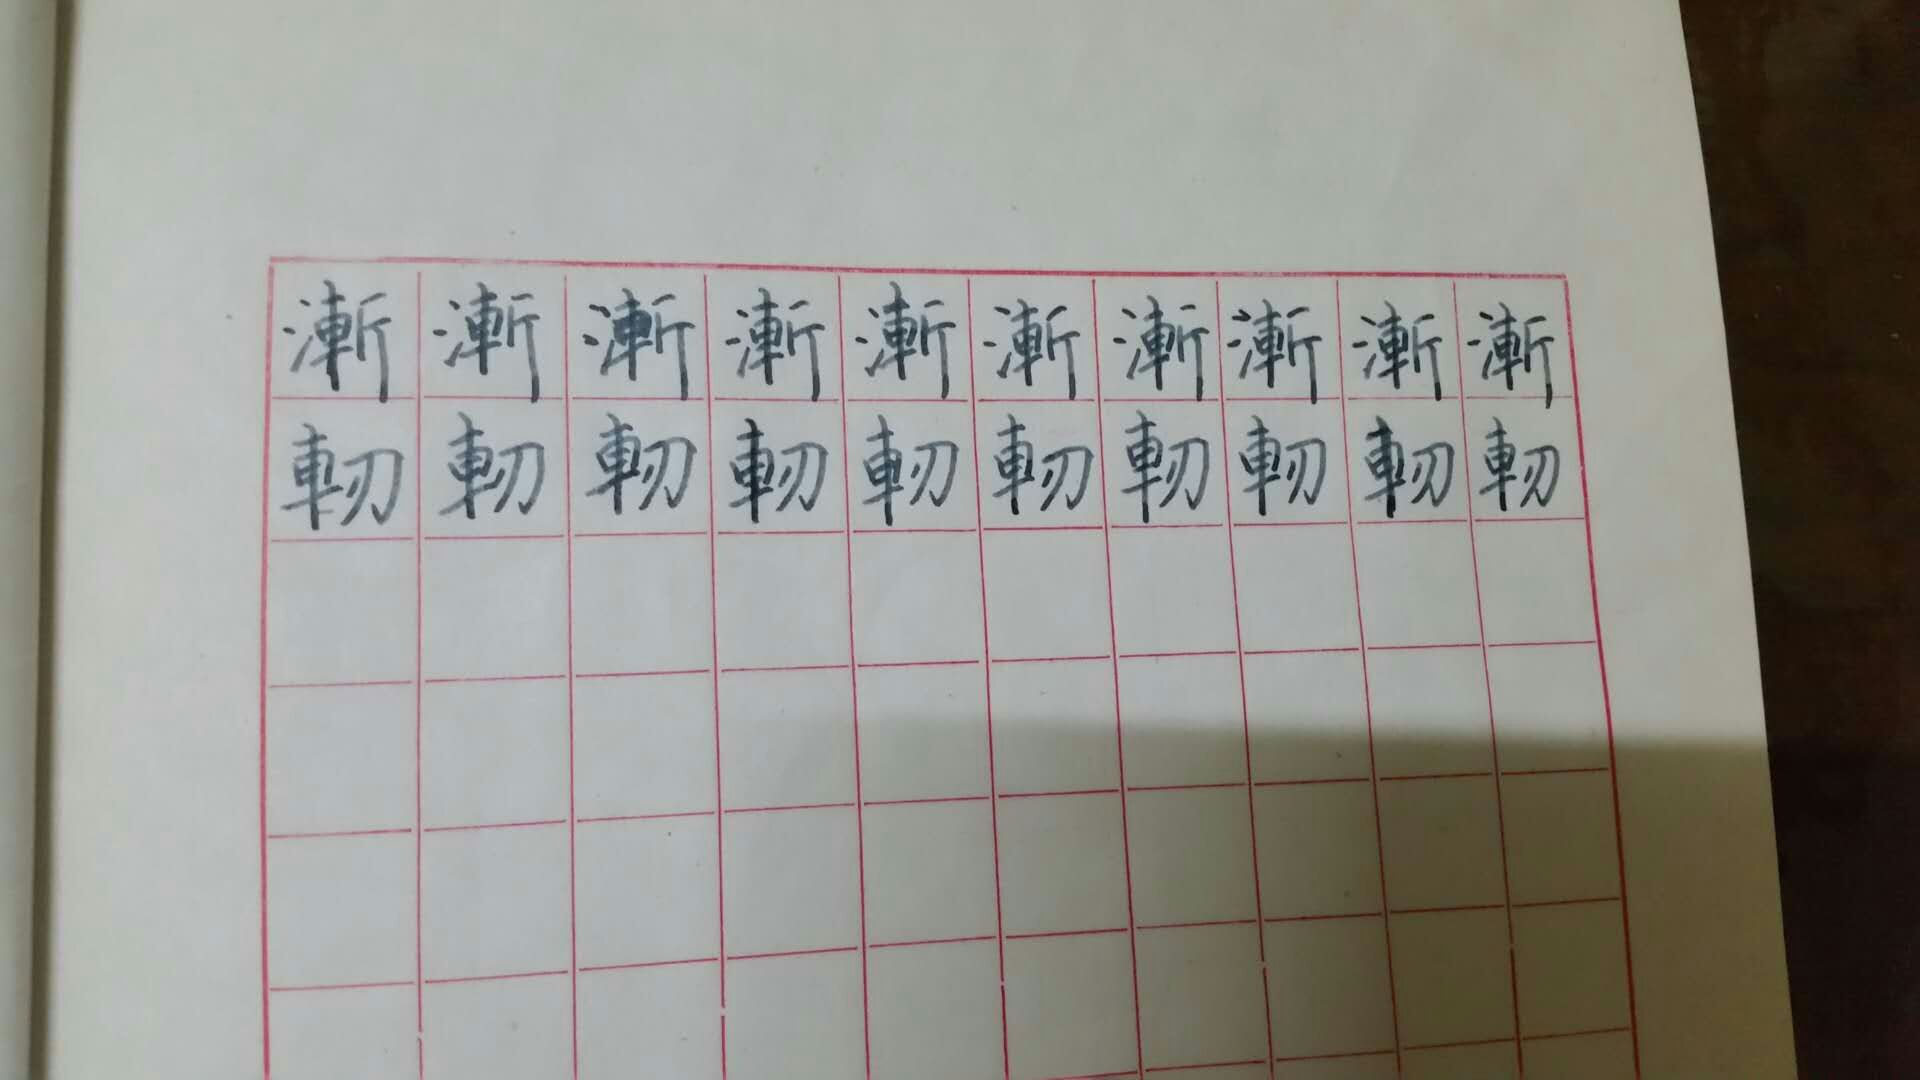 漸漸漸漸漸漸漸漸漸漸
軔軔軔軔軔軔軔軔軔軔